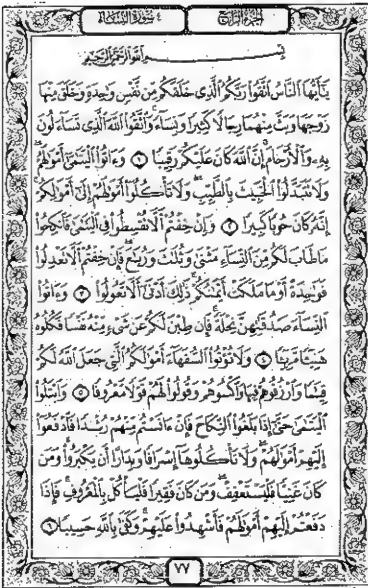 الجزء الرابع
٤ سورة النساء
بسم الله الرحمن الرحيم
يَٰٓأَيُّهَا ٱلنَّاسُ ٱتَّقُوا۟ رَبَّكُمُ ٱلَّذِى خَلَقَكُم مِّن نَّفْسٍ وَٰحِدَةٍ وَخَلَقَ مِنْهَا
زَوْجَهَا وَبَثَّ مِنْهُمَا رِجَالًا كَثِيرًا وَنِسَآءً وَٱتَّقُوا۟ ٱللَّهَ ٱلَّذِى تَسَآءَلُونَ
بِهِۦ وَٱلْأَرْحَامَ إِنَّ ٱللَّهَ كَانَ عَلَيْكُمْ رَقِيبًا ١ وَءَاتُوا۟ ٱلْيَتَٰمَىٰٓ أَمْوَٰلَهُمْ
وَلَا تَتَبَدَّلُوا۟ ٱلْخَبِيثَ بِٱلطَّيِّبِ وَلَا تَأْكُلُوٓا۟ أَمْوَٰلَهُمْ إِلَىٰٓ أَمْوَٰلِكُمْ
إِنَّهُۥ كَانَ حُوبًا كَبِيرًا ٢ وَإِنْ خِفْتُمْ أَلَّا تُقْسِطُوا۟ فِى ٱلْيَتَٰمَىٰ فَٱنكِحُوا۟
مَا طَابَ لَكُم مِّنَ ٱلنِّسَآءِ مَثْنَىٰ وَثُلَٰثَ وَرُبَٰعَ فَإِنْ خِفْتُمْ أَلَّا تَعْدِلُوا۟
فَوَٰحِدَةً أَوْ مَا مَلَكَتْ أَيْمَٰنُكُمْ ذَٰلِكَ أَدْنَىٰٓ أَلَّا تَعُولُوا۟ ٣ وَءَاتُوا۟
ٱلنِّسَآءَ صَدُقَٰتِهِنَّ نِحْلَةً فَإِن طِبْنَ لَكُمْ عَن شَىْءٍ مِّنْهُ نَفْسًا فَكُلُوهُ
هَنِيٓـًٔا مَّرِيٓـًٔا ٤ وَلَا تُؤْتُوا۟ ٱلسُّفَهَآءَ أَمْوَٰلَكُمُ ٱلَّتِى جَعَلَ ٱللَّهُ لَكُمْ
قِيَٰمًا وَٱرْزُقُوهُمْ فِيهَا وَٱكْسُوهُمْ وَقُولُوا۟ لَهُمْ قَوْلًا مَّعْرُوفًا ٥ وَٱبْتَلُوا۟
ٱلْيَتَٰمَىٰ حَتَّىٰٓ إِذَا بَلَغُوا۟ ٱلنِّكَاحَ فَإِنْ ءَانَسْتُم مِّنْهُمْ رُشْدًا فَٱدْفَعُوٓا۟
إِلَيْهِمْ أَمْوَٰلَهُمْ وَلَا تَأْكُلُوهَآ إِسْرَافًا وَبِدَارًا أَن يَكْبَرُوا۟ وَمَن
كَانَ غَنِيًّا فَلْيَسْتَعْفِفْ وَمَن كَانَ فَقِيرًا فَلْيَأْكُلْ بِٱلْمَعْرُوفِ فَإِذَا
دَفَعْتُمْ إِلَيْهِمْ أَمْوَٰلَهُمْ فَأَشْهِدُوا۟ عَلَيْهِمْ وَكَفَىٰ بِٱللَّهِ حَسِيبًا ٦
٧٧